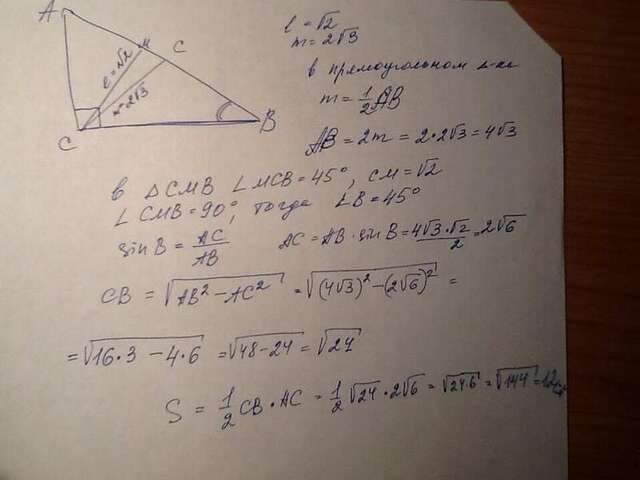 A
M
C
l = √2
2√3
C
B
l = √2
m = 2√3
в прямоугольном
m = 1/2 AB
AB = 2m = 2·2√3 = 4√3
в △ CMB ∠MCB = 45°, CM = √2
∠ CMB = 90°, тогда ∠B = 45°
sin B = AC/AB AC = AB · sin B = 4√3·√2/2 = 2√6
CB = √(AB² − AC²) = √((4√3)² − (2√6)²) =
= √(16·3 − 4·6) = √(48 − 24) = √24
S = 1/2 CB · AC = 1/2 √24 · 2√6 = √(24·6) = √144 = 12